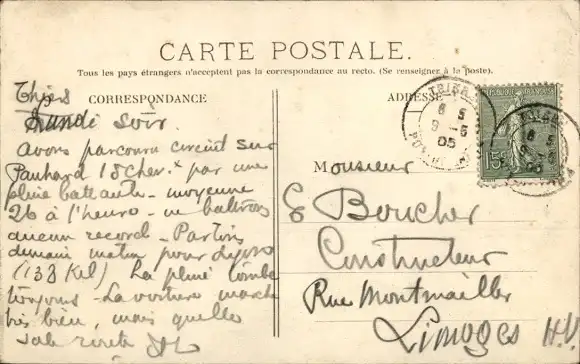 CARTE POSTALE.
Tous les pays étrangers n'acceptent pas la correspondance au recto. (Se renseigner à la poste).
CORRESPONDANCE
Thiers
Lundi soir
avons parcouru circuit sur
Panhard 18 chev. x par une
pluie battante - moyenne
26 à l'heure - ne battrons
aucun record - Partons
demain matin pour
(138 Kil) La pluie tombe
toujours - La voiture marche
très bien, mais quelle
sale route
ADRESSE
Monsieur
E Boucher
Constructeur
Rue Montmailler
Limoges H.V.
THIERS
8 5
9 - 5
05
RÉPUBLIQUE FRANÇAISE
15c
POSTES
THIERS
8 5
05